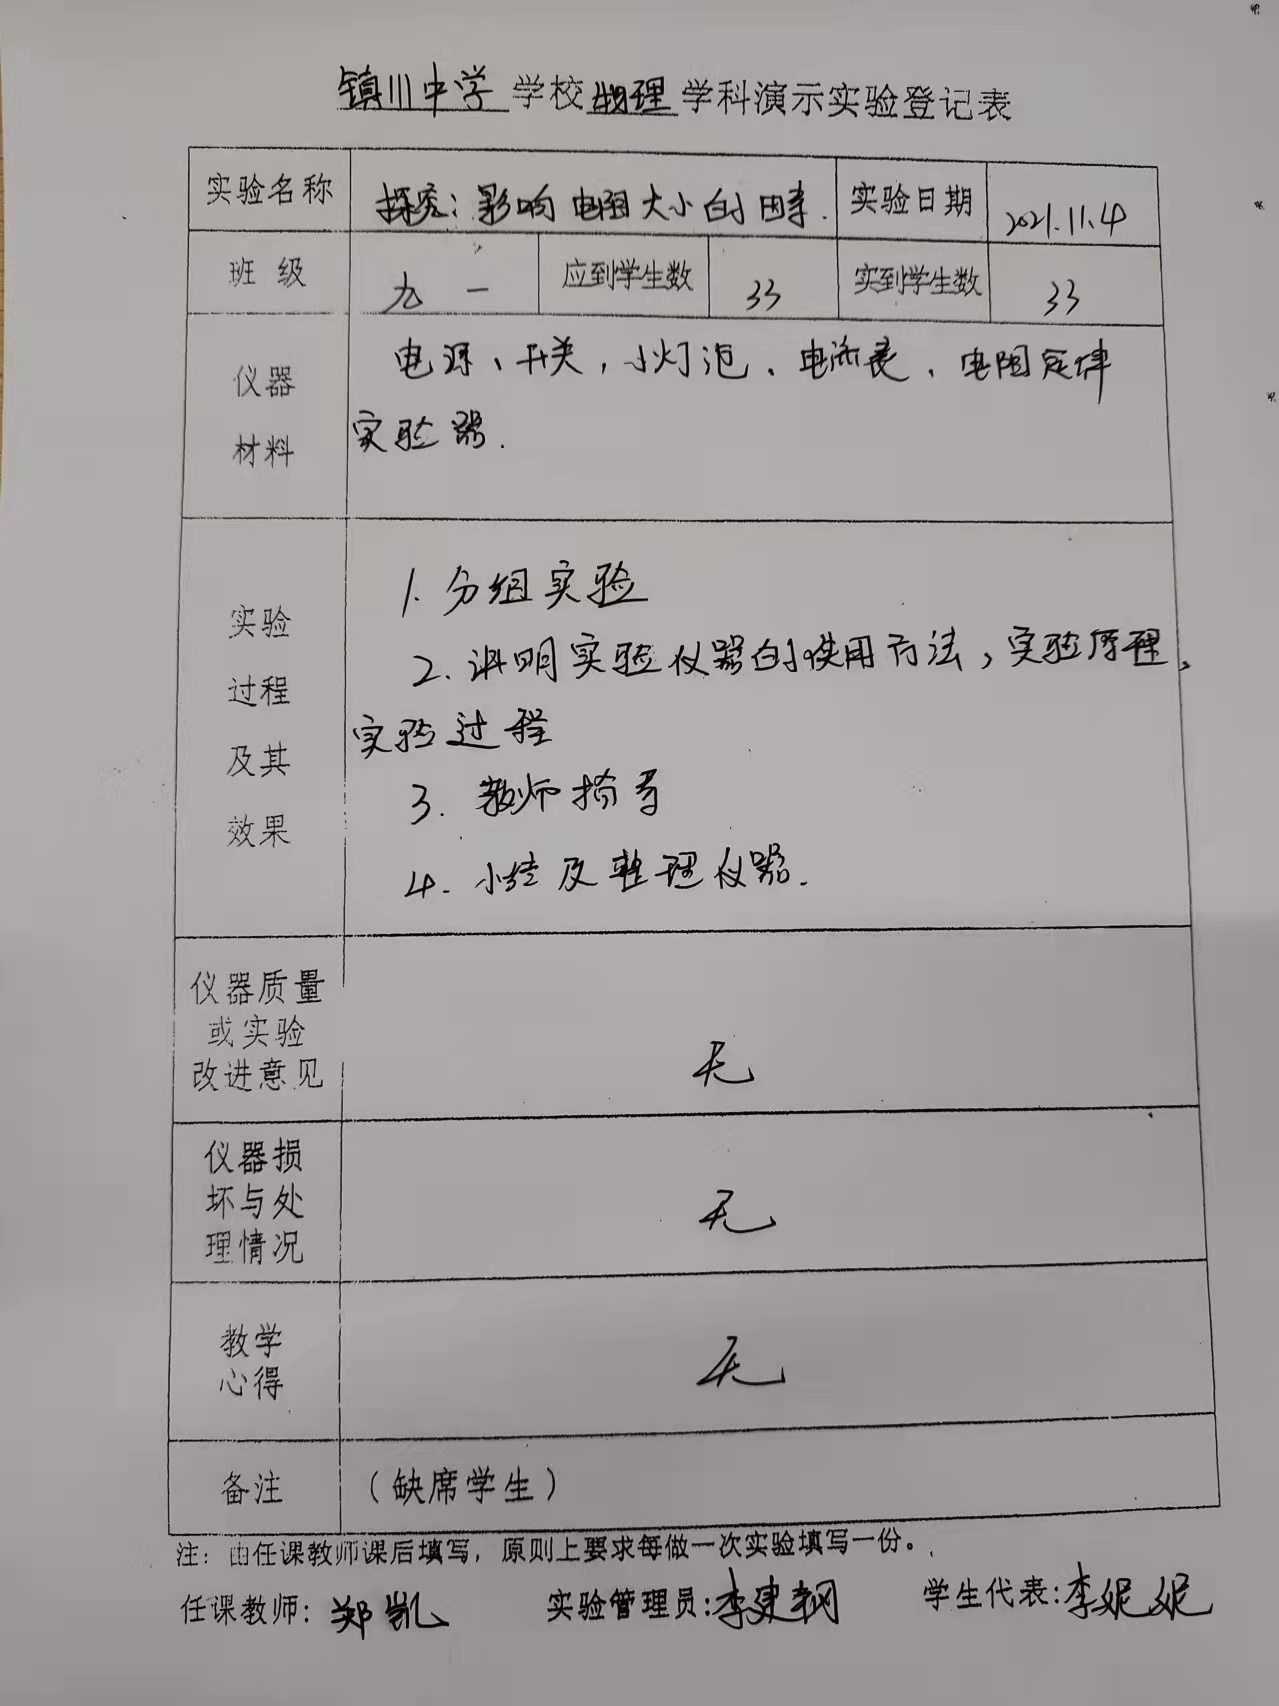 镇川中学学校物理学科演示实验登记表
实验名称 探究：影响电阻大小的因素. 实验日期 2021.11.4
班级 九一 应到学生数 33 实到学生数 33
仪器
材料
电源、开关，小灯泡、电流表、电阻定律
实验器.
实验
过程
及其
效果
1.分组实验
2.讲明实验仪器的使用方法，实验原理、
实验过程
3.教师指导
4.小结及整理仪器.
仪器质量
或实验
改进意见
无
仪器损
坏与处
理情况
无
教学
心得
无
备注 （缺席学生）
注：由任课教师课后填写，原则上要求每做一次实验填写一份。
任课教师：郑凯 实验管理员：李建钢 学生代表：李妮妮